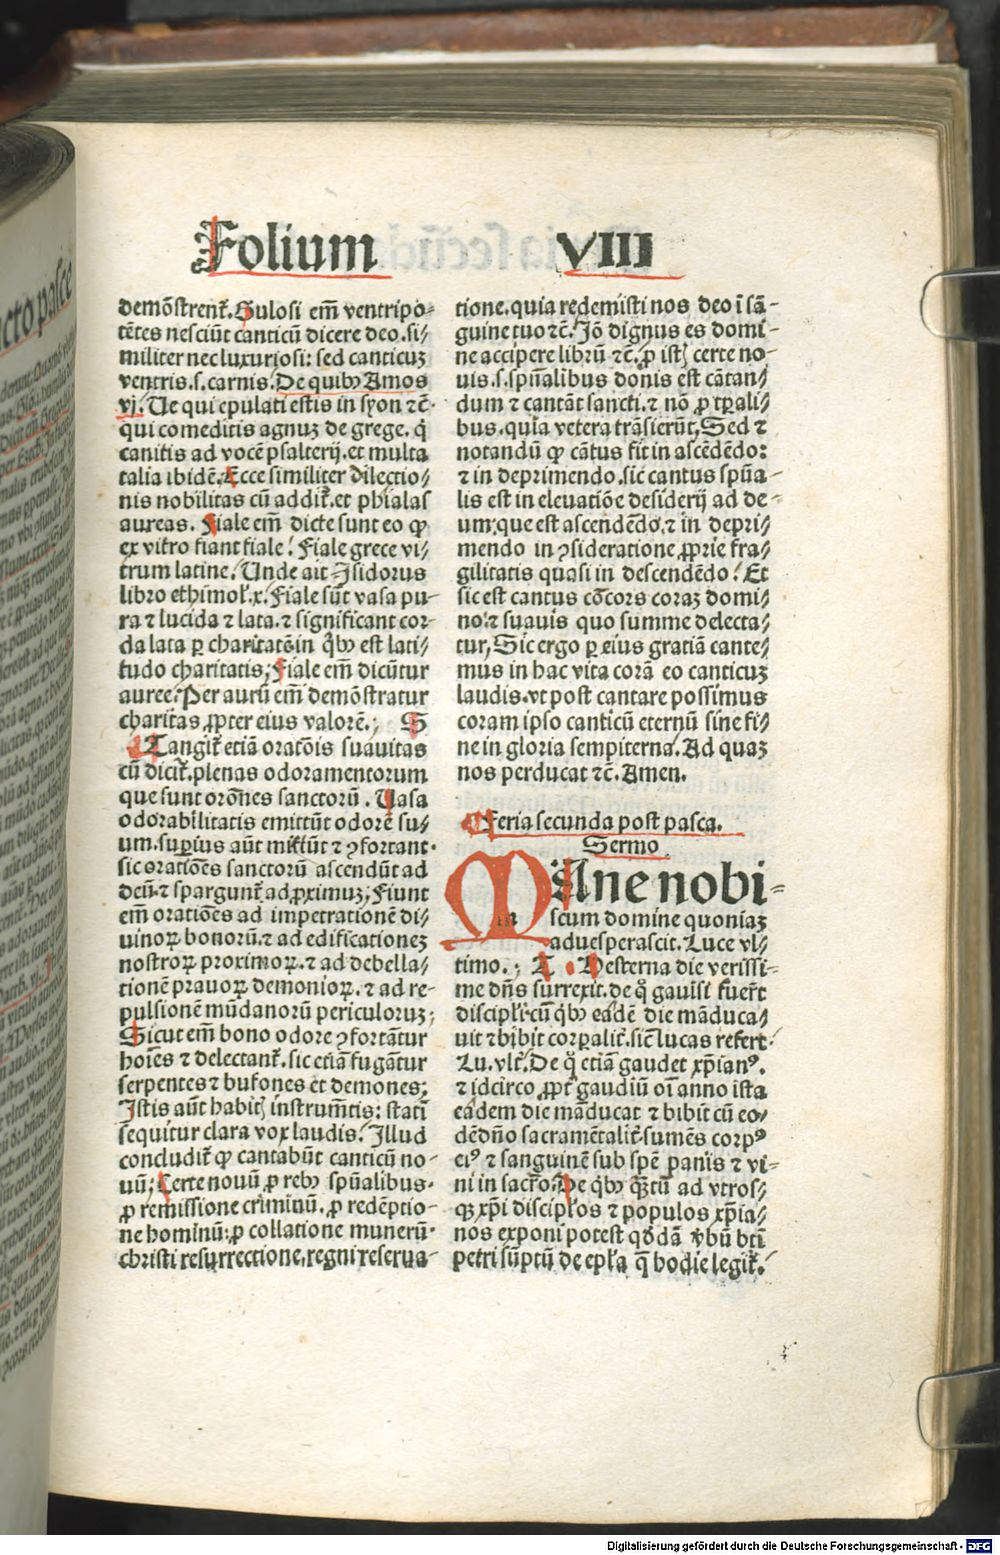 Folium VIII
demōstrent᷑. Gulosi em̄ ventripo⸗
tētes nesciūt canticū dicere deo. si⸗
militer nec luxuriosi: sed canticuꝫ
ventris. s. carnis. De quibꝰ Amos
vj. Ue qui epulati estis in syon ⁊c̄.
qui comeditis agnuꝫ de grege. q̇
canitis ad vocē psalterij. et multa
talia ibidē. Ecce similiter dilectio⸗
nis nobilitas cū addit᷑. et phialas
aureas. Fiale em̄ dicte sunt eo ꝙ
ex vitro fiant fiale. Fiale grece vi⸗
trum latine. Unde ait Isidorus
libro ethimol̕. x. Fiale sūt vasa pu⸗
ra ⁊ lucida ⁊ lata. ⁊ significant cor⸗
da lata ꝑ charitatē in q̇bꝰ est lati⸗
tudo charitatis, Fiale em̄ dicūtur
auree. Per aurū em̄ demōstratur
charitas ꝓpter eius valorē. S
Tangit᷑ etiā oratōis suauitas
cū dicit᷑. plenas odoramentorum
que sunt orōnes sanctorū. Uasa
odorabilitatis emittūt odorē su⸗
um. suꝑius aūt mittūt ⁊ ꝯfortant.
sic oratiōes sanctorū ascendūt ad
deū. ⁊ spargunt᷑ ad ꝓximuꝫ, Fiunt
em̄ oratiōes ad impetrationē di⸗
uinoꝝ bonorū. ⁊ ad edificationeꝫ
nostroꝝ proximoꝝ. ⁊ ad debella⸗
tionē prauoꝝ demonioꝝ. ⁊ ad re⸗
pulsionē mūdanorū periculoruꝫ,
Sicut em̄ bono odore ꝯfortātur
hoīes ⁊ delectant᷑. sic etiā fugātur
serpentes ⁊ bufones et demones,
Istis aūt habit̕ instrum̄tis: statī
sequitur clara vox laudis. Illud
concludit᷑ ꝙ cantabūt canticū no⸗
uū, Certe nouū ꝓ rebꝰ spūalibus.
ꝓ remissione criminū. ꝓ redēptio⸗
ne hominū, ꝓ collatione munerū.
christi resurrectione. regni reserua⸗
tione. quia redemisti nos deo ī sā⸗
guine tuo ⁊c̄. Jō dignus es domi⸗
ne accipere librū ⁊c̄. ꝓ istꝭ certe no⸗
uis. s. spūalibus donis est cātan⸗
dum ⁊ cantāt sancti. ⁊ nō ꝓ tꝑali⸗
bus. quia vetera trāsierūt, Sed ⁊
notandū ꝙ cātus fit in ascēdēdo:
⁊ in deprimendo. sic cantus spūa⸗
lis est in eleuatiōe desiderij ad de⸗
um, que est ascendēdo, ⁊ in depri⸗
mendo in ꝯsideratione ꝓprie fra⸗
gilitatis quasi in descendēdo. Et
sic est cantus cōcors coraꝫ domi⸗
no. ⁊ suauis quo summe delecta⸗
tur, Sic ergo ꝑ eius gratiā cante⸗
mus in hac vita corā eo canticuꝫ
laudis. vt post cantare possimus
coram ipso canticū eternū sine fi⸗
ne in gloria sempiterna. Ad quaꝫ
nos perducat ⁊c̄. Amen.
Feria secunda post pasca.
Sermo
MAne nobi⸗
scum domine quoniaꝫ
aduesperascit. Luce vl⸗
timo. T Hesterna die verissi⸗
me dn̄s surrexit. de q̊ gauisi fuer̄t
discipl̕i. cū q̇bꝰ eādē die māduca⸗
uit ⁊ bibit corꝑalit᷑. sic̄ lucas refert.
Lu. vlt̕. De q̊ etiā gaudet xp̄ianꝰ.
⁊ idcirco ꝓpt̕ gaudiū oī anno ista
eādem die māducat ⁊ bibit cū eo⸗
dē dn̄o sacramētalit᷑. sumēs corpꝰ
eiꝰ ⁊ sanguinē sub spē panis ⁊ vi⸗
ni in sacr̄o. De q̇bꝰ q̄tū ad vtros⸗
qꝫ xp̄i discipl̕os ⁊ populos xp̄ia⸗
nos exponi potest q̊ddā v̄bū btī
petri sūptū de epl̕a q̄ hodie legit᷑.